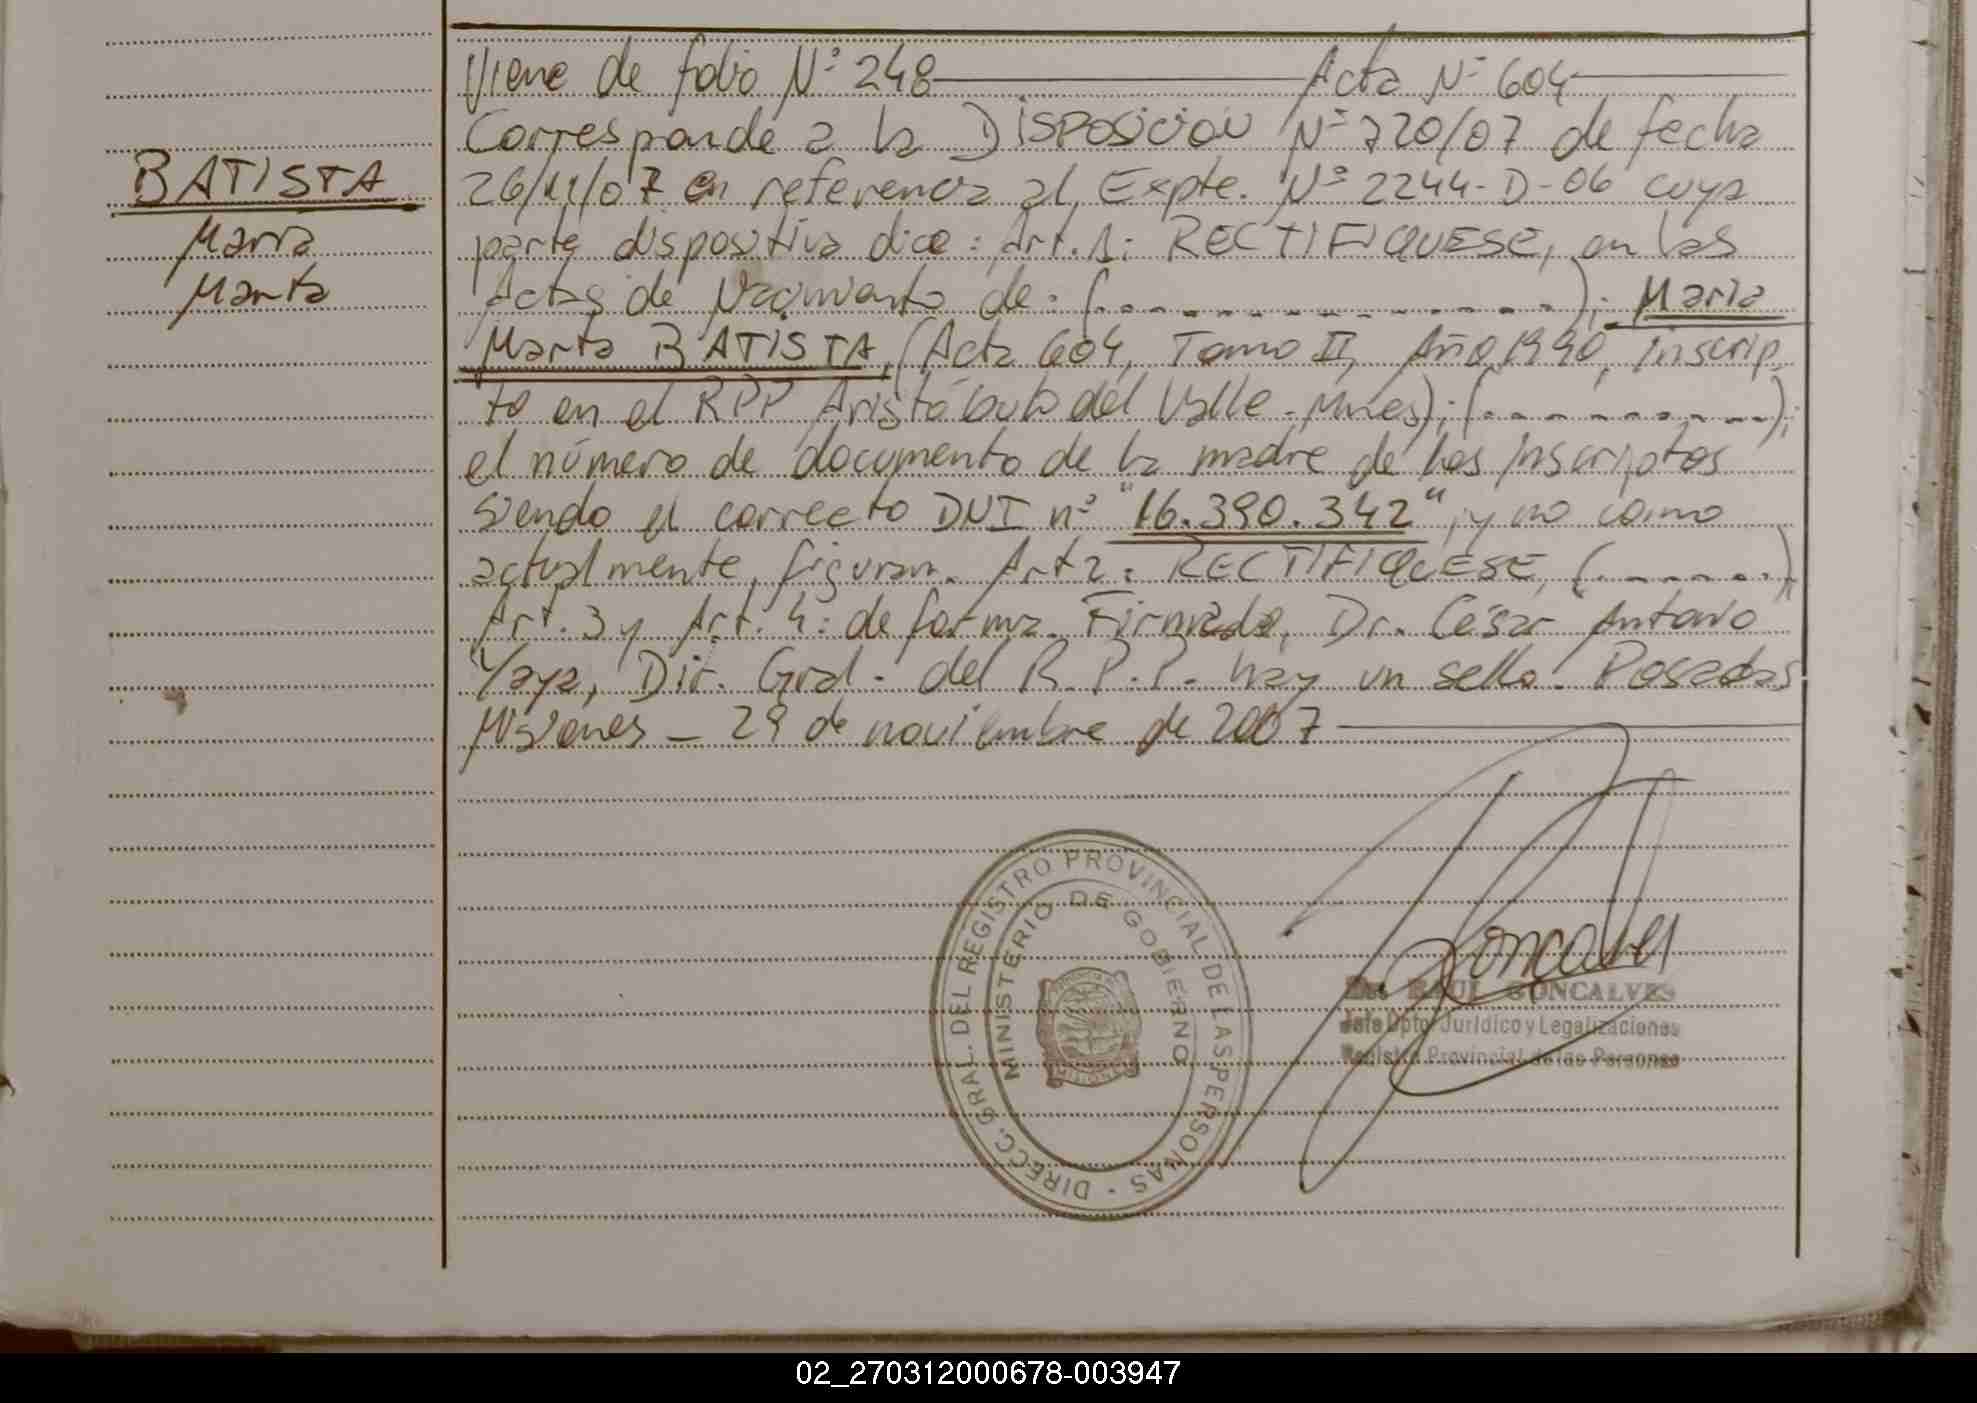 BATISTA
Maria
Marta
Viene de folio Nº 248 Acta Nº 604
Corresponde a la DISPOSICION Nº 720/07 de fecha
26/11/07 en referencia al Expte. Nº 2244-D-06 cuya
parte dispositiva dice: Art. 1: RECTIFIQUESE, en las
Actas de Nacimiento de: (. - . - . - . - . - . - . - .); Maria
Marta BATISTA, (Acta 604, Tomo II, Año 1990, inscrip
to en el RPP Aristóbulo del Valle - Mnes); (. - . - . - . - . - .);
el número de documento de la madre de los inscriptos
siendo el correcto DNI nº "16.390.342", y no como
actualmente figuran. Art 2: RECTIFIQUESE, (. - . - . - .)
Art. 3 y Art. 4: de forma. Firmado, Dr. César Antonio
Yaya, Dir. Gral. del R.P.P. hay un sello. Posadas
Misiones - 29 de noviembre de 2007
DIRECC. GRAL. DEL REGISTRO PROVINCIAL DE LAS PERSONAS -
MINISTERIO DE GOBIERNO
Goncalves
RAUL GONCALVES
Jefe Dpto. Jurídico y Legalizaciones
Registro Provincial de las Personas
02_270312000678-003947